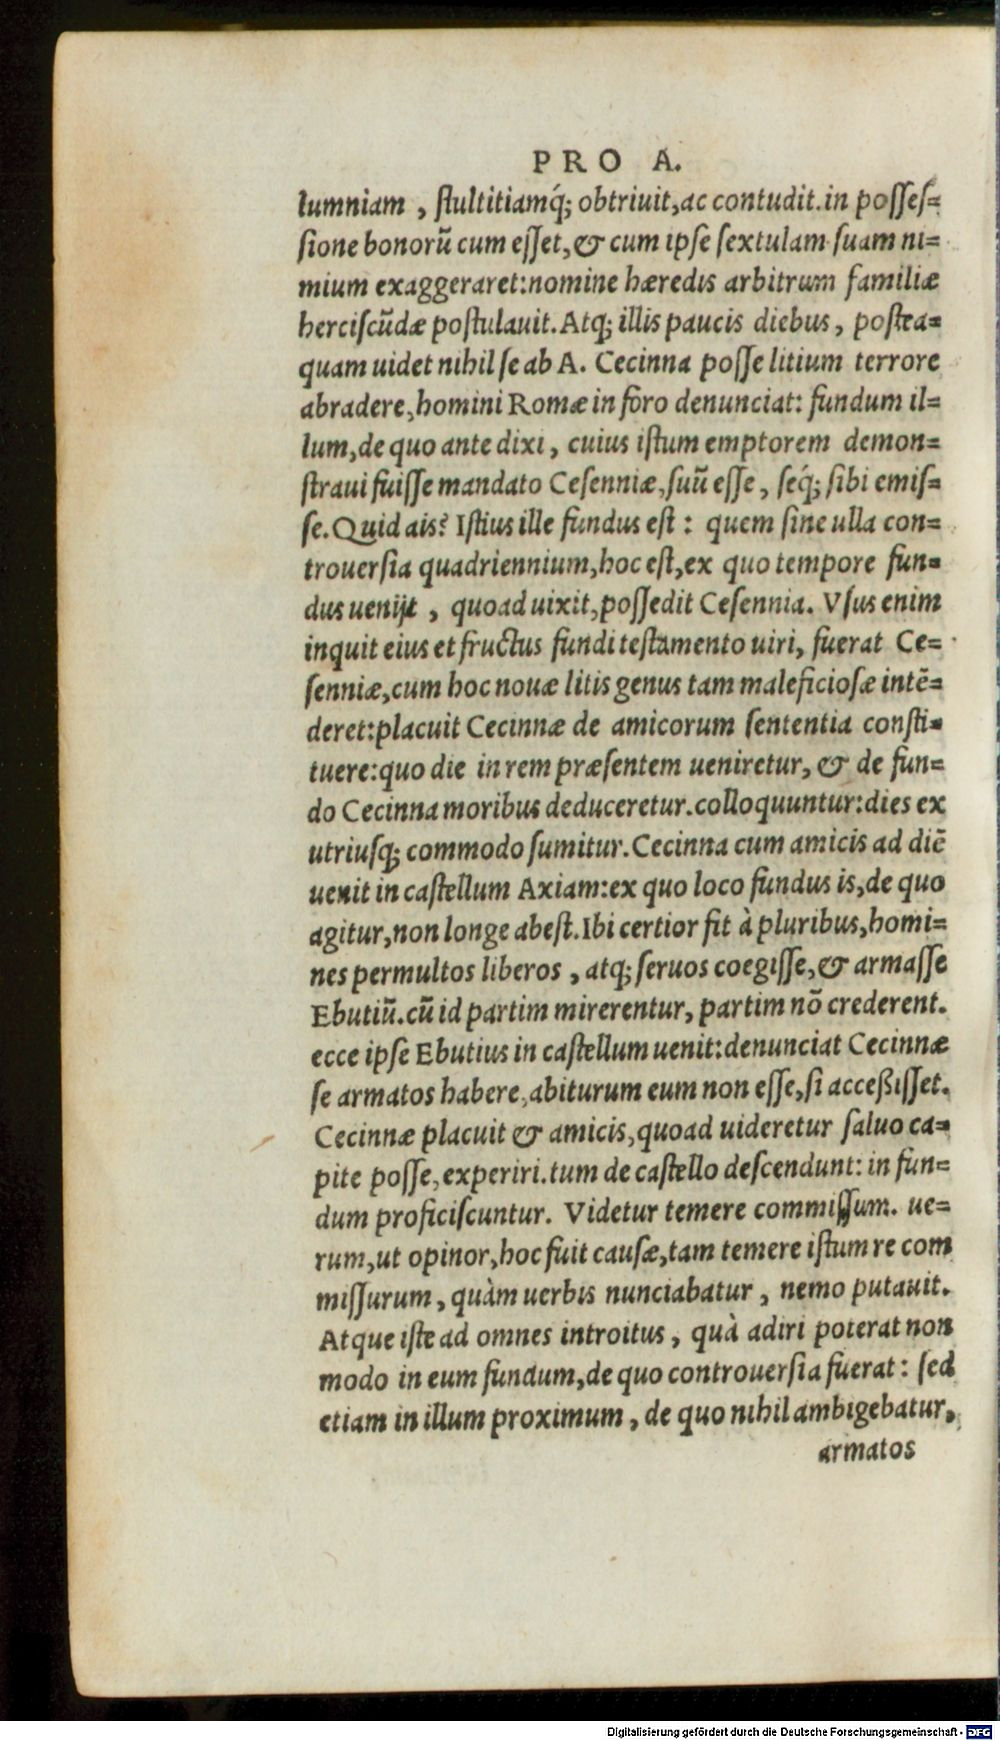 PRO A.
lumniam , ſtultitiamq́; obtriuit,ac contudit.in poſſeſ=
ſione bonorũ cum eſſet,& cum ipſe ſextulam ſuam ni=
mium exaggeraret:nomine hæredis arbitrum familiæ
herciſcũdæ poſtulauit.Atq; illis paucis diebus, poſtea=
quam uidet nihil ſe ab A. Cecinna poſſe litium terrore
abradere,homini Romæ in foro denunciat: fundum il=
lum,de quo ante dixi, cuius iſtum emptorem demon=
ſtraui fuiſſe mandato Ceſenniæ,ſuũ eſſe, ſeq́; ſibi emiſ=
ſe.Quid ais? Iſtius ille fundus eſt : quem ſine ulla con=
trouerſia quadriennium,hoc eſt,ex quo tempore fun=
dus uenijt , quoad uixit,poſſedit Ceſennia. Vſus enim
inquit eius et fructus fundi teſtamento uiri, fuerat Ce=
ſenniæ,cum hoc nouæ litis genus tam maleficioſæ intẽ=
deret:placuit Cecinnæ de amicorum ſententia conſti=
tuere:quo die in rem præſentem ueniretur, & de fun=
do Cecinna moribus deduceretur.colloquuntur:dies ex
utriuſq; commodo ſumitur.Cecinna cum amicis ad diẽ
uenit in caſtellum Axiam:ex quo loco fundus is,de quo
agitur,non longe abeſt.Ibi certior fit à pluribus,homi=
nes permultos liberos , atq; ſeruos coegiſſe,& armaſſe
Ebutiũ.cũ id partim mirerentur, partim nõ crederent.
ecce ipſe Ebutius in caſtellum uenit:denunciat Cecinnæ
ſe armatos habere,abiturum eum non eſſe,ſi acceßiſſet.
Cecinnæ placuit & amicis,quoad uideretur ſaluo ca=
pite poſſe,experiri.tum de caſtello deſcendunt: in fun=
dum proficiſcuntur. Videtur temere commiſſum. ue=
rum,ut opinor,hoc fuit cauſæ,tam temere iſtum re com
miſſurum, quàm uerbis nunciabatur , nemo putauit.
Atque iſte ad omnes introitus, quà adiri poterat non
modo in eum fundum,de quo controuerſia fuerat: ſed
etiam in illum proximum, de quo nihil ambigebatur,
armatos
Digitalisierung gefördert durch die Deutsche Forschungsgemeinschaft - DFG